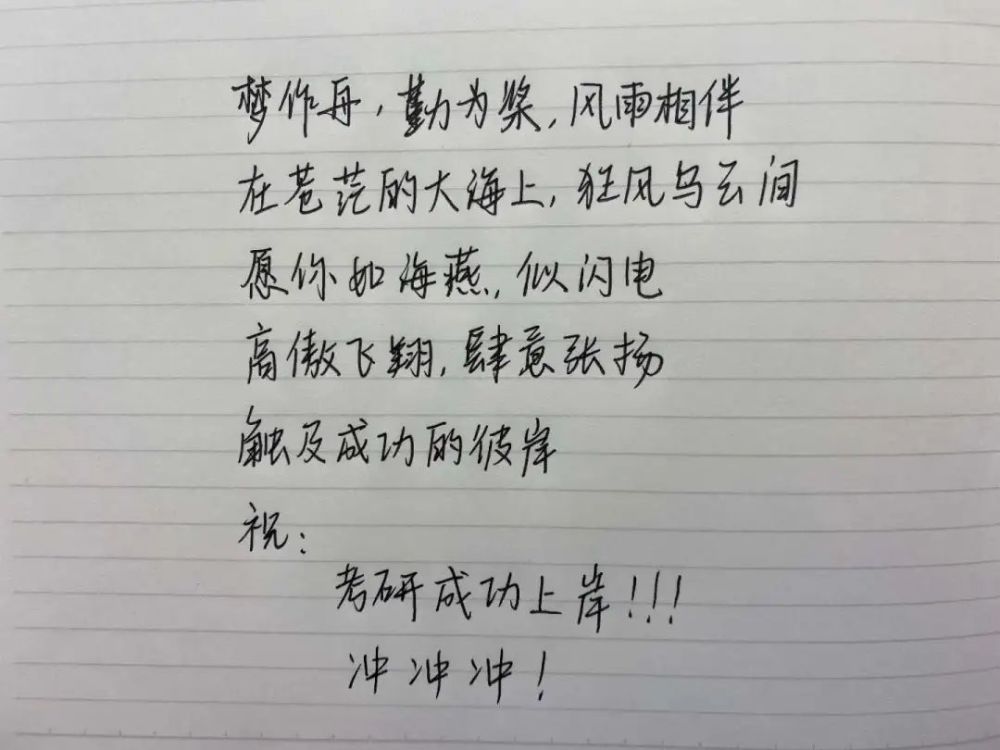 梦作舟，勤为桨，风雨相伴
在苍茫的大海上，狂风乌云间
愿你如海燕，似闪电
高傲飞翔，肆意张扬
触及成功的彼岸
祝：
考研成功上岸！！！
冲冲冲！